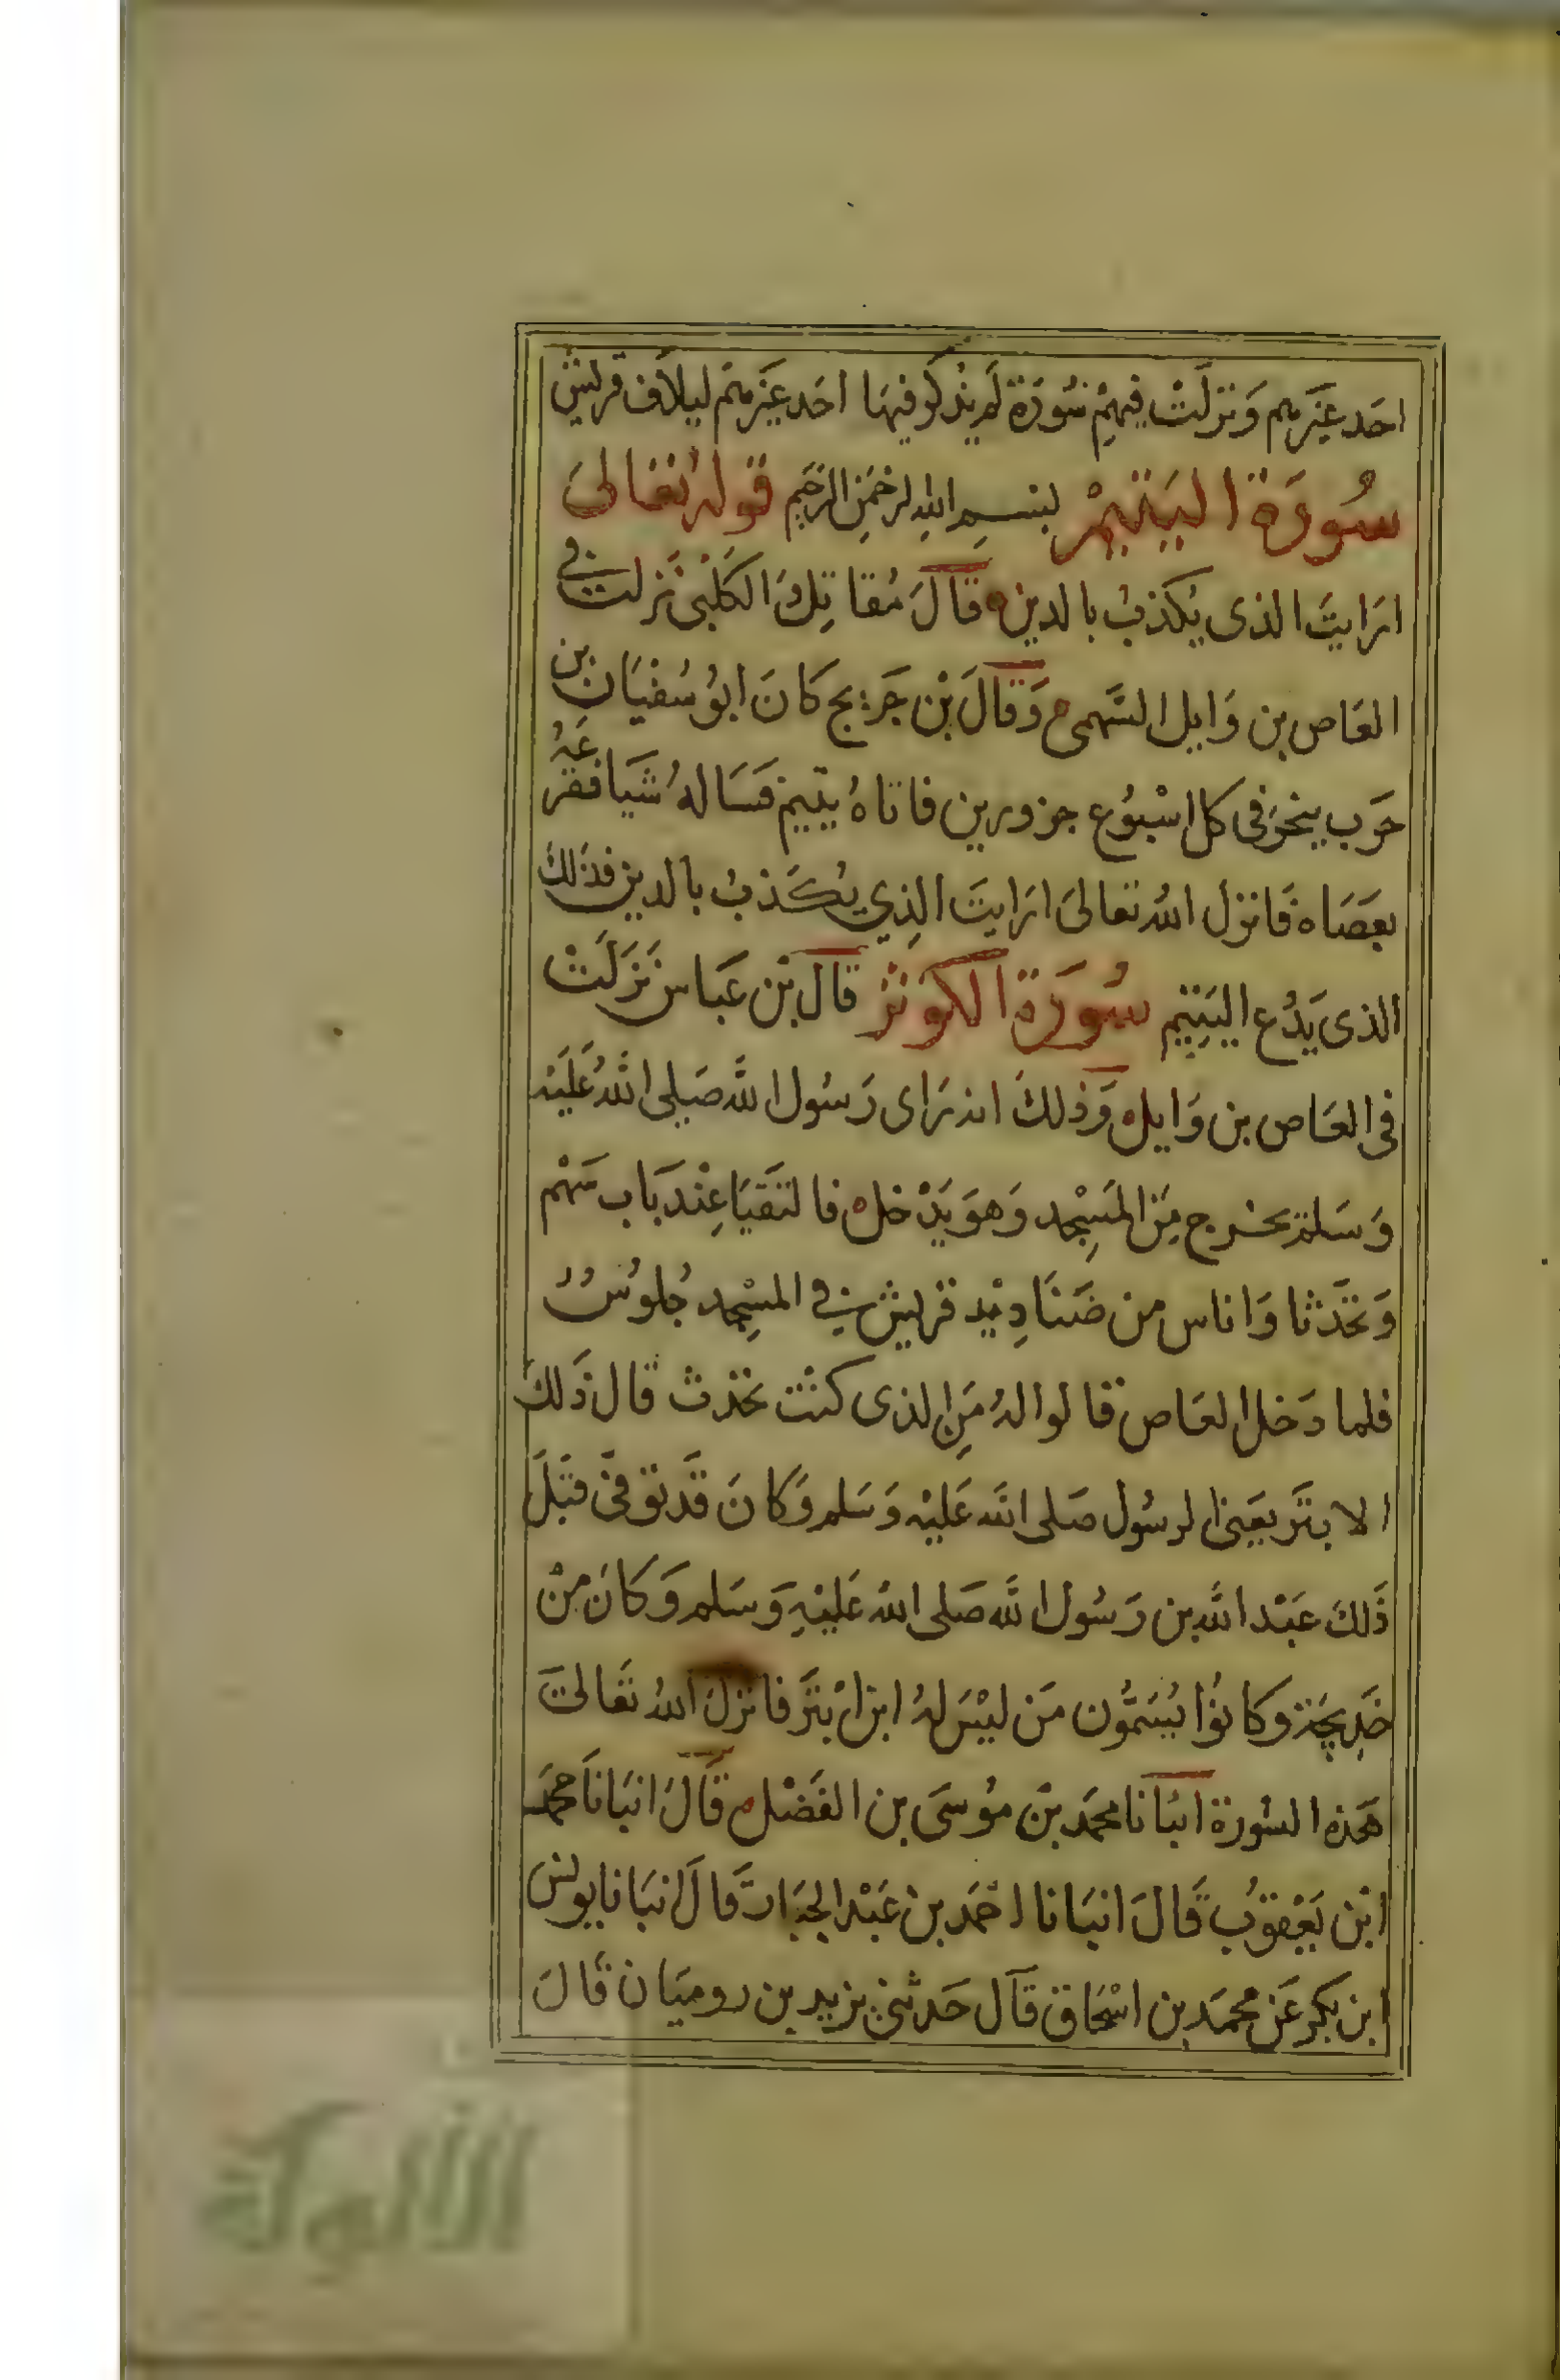 احَد غيَرهم وَنزلَتْ فيهِمْ سُورَة لَم يُذكَر فيهَا احَد غيَرهم ليلاَف قريش
سُورَة اليَتيمْ بسْمِ اللهِ الرحمَنِ الرَحيِم قولهُ تعَالىَ
ارَايتَ الذى يُكذبُ بالدين قَالَ مُقاتِل وَالكَلْبى نَزلت فى
العَاص بن وَايل السَّهمى وَقالَ بْن جَريج كَانَ ابوُ سُفْيَان بن
حَرب ينحَر فى كل اسْبوُع جزورين فاتاهُ يتَيم فسَالهُ شيَا فقرعَهُ
بعَصَاه فَانزل اللهُ تعَالىَ ارَايتَ الذِي يُكَذبُ بالدين فذَلك
الذى يَدُع اليَتِيم سُورَة الكَوثر قالَ بْن عَباس نَزَلَتْ
فى العَاص بن وَايل وَذلكَ انه رَاى رَسُول الله صَلى اللهُ عَلَيْه
وَسَلم يخرج مِنَ المَسِجْد وَهوَ يَدْخل فالتقَيَا عِنْد بَاب سَهْم
وَتحَدثا وَاناس من صَنَادِيْد قريش في المسْجِد جُلوُسُ
فلما دَخل العَاص قالوا لهُ مَنِ الذى كنْت تحَدث قال ذَلكَ
الابتَر يعَنى الرسُول صَلى الله عَليْه وَسَلم وَكانَ قَد توَفىّ قبْلَ
ذَلكَ عَبْد الله بن رَسُول الله صَلى اللهُ عَليْهِ وَسَلم وَكانَ منْ
خَدِيجَة وَكانوُا يُسَمُّون مَن ليْسَ لهُ ابن ابْتَر فانزلَ اللهُ تعَالىَ
هَذه السُورَة انبَانا محمَد بْن مُوسَى بن الفَضْل قَالَ انبَانَا محمَد
ابْن يَعْقوُب قَالَ انبَانا احْمَد بن عَبْد الجَبار قَالَ انبَانا يونس
ابن بكير عَن محمَد بن اسْحَاق قَال حَدثنى يزيد بن روميَان قَالَ
الألوكة